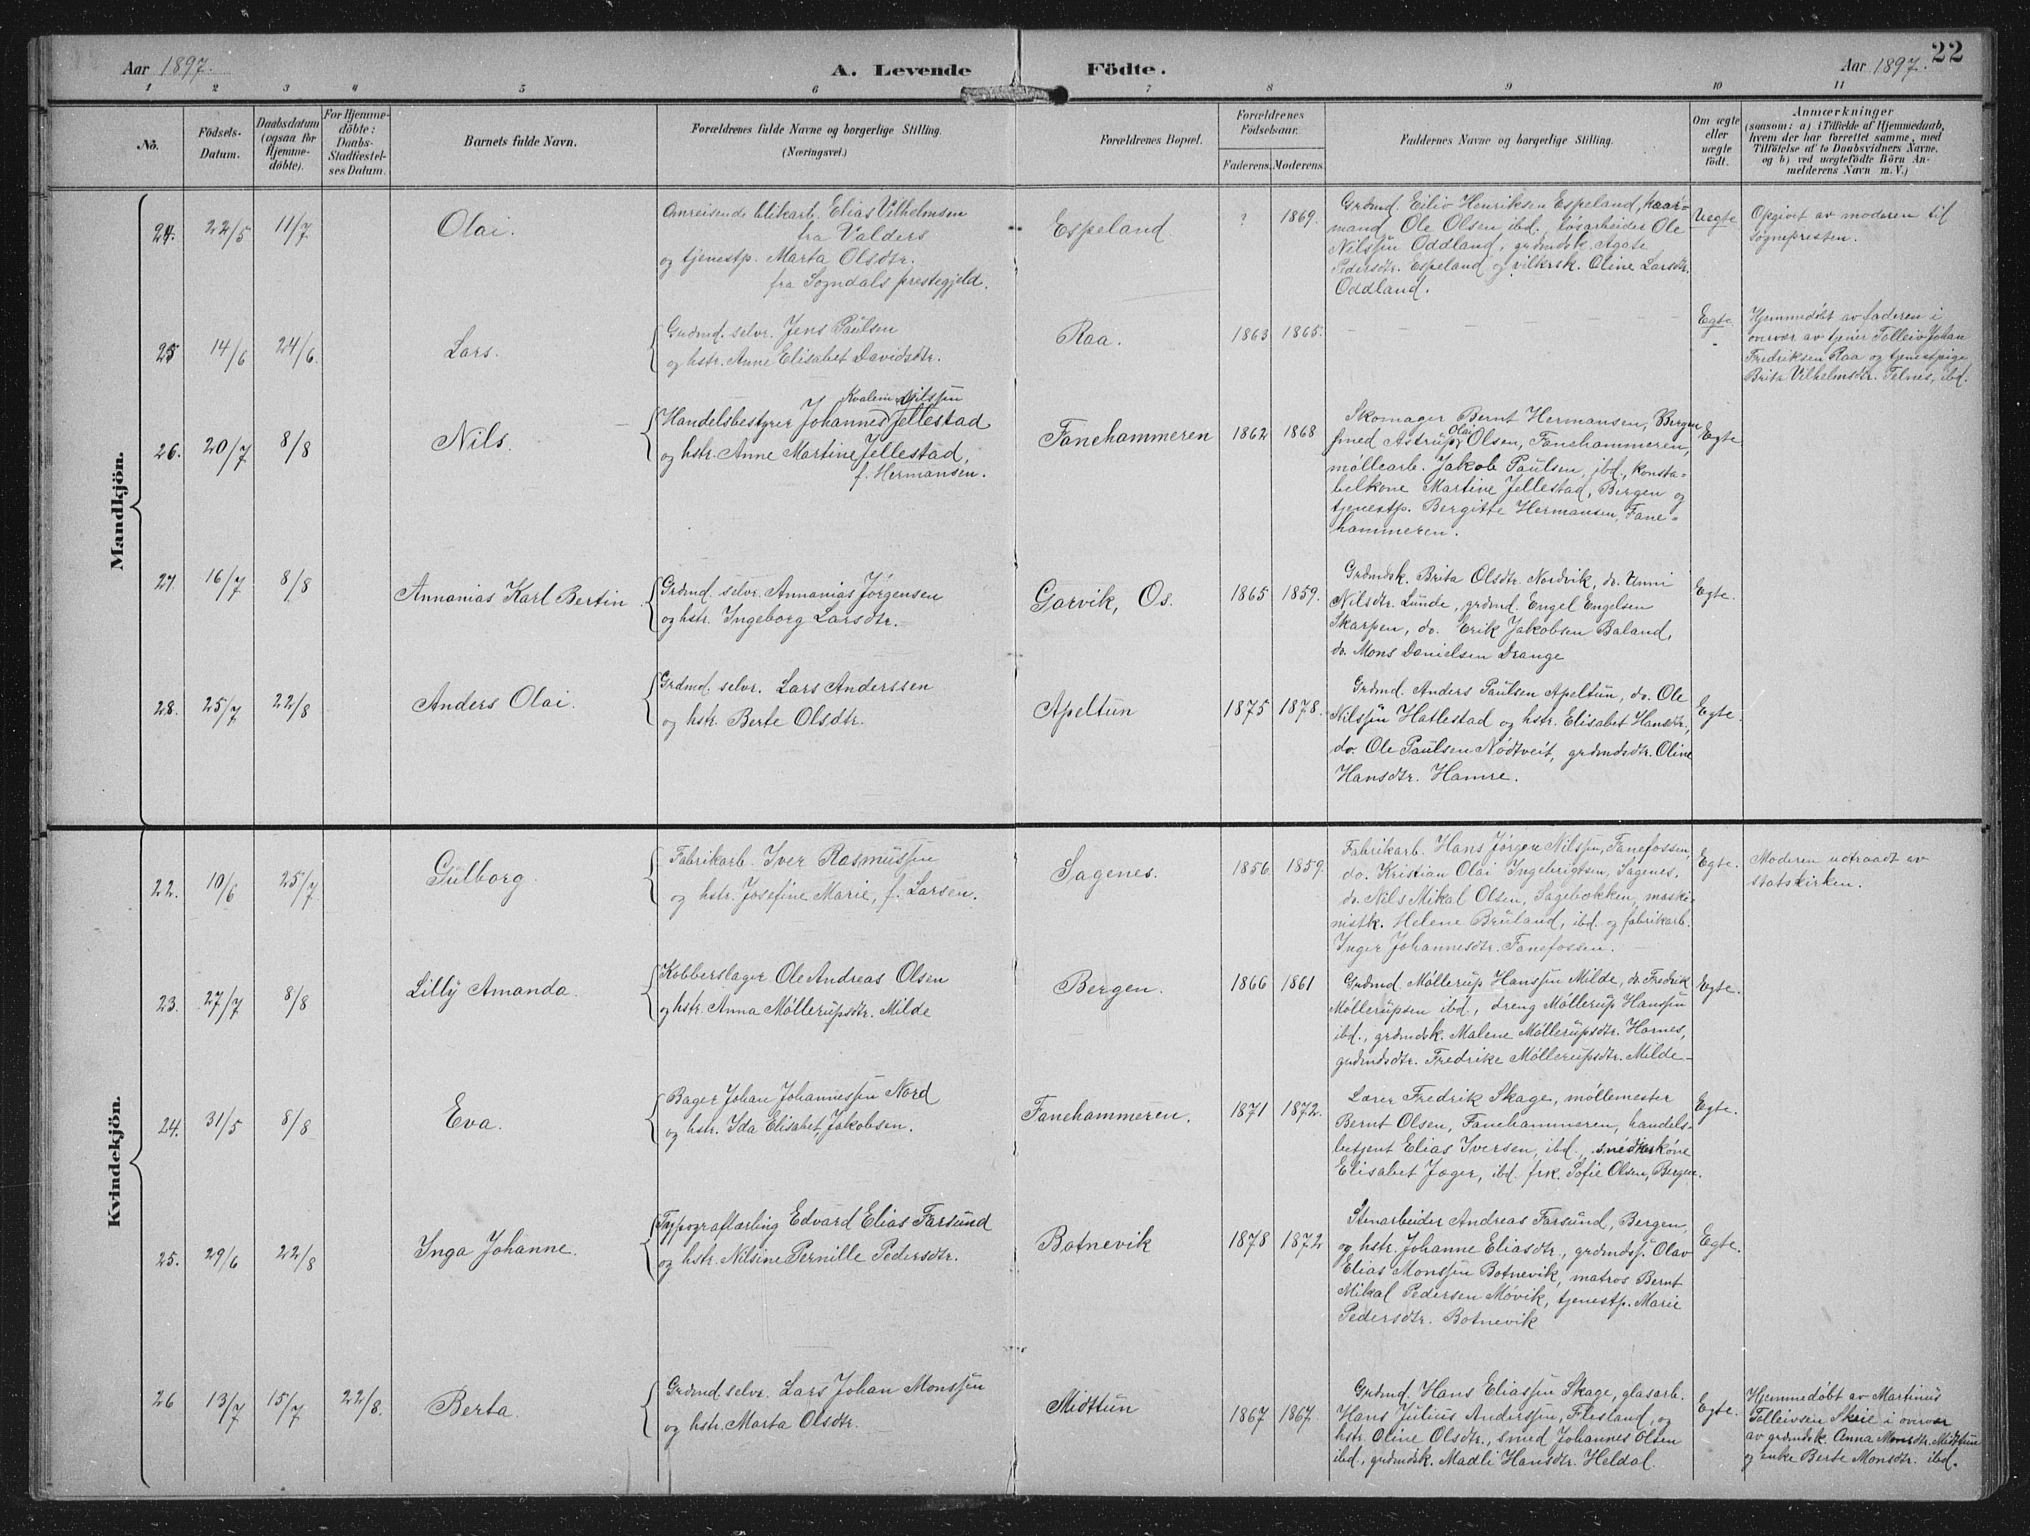 22
Aar 1897. A. Levende Födte. Aar 1897.
1 2 3 4 5 6 7 8 9 10 11
No.
Födsels-
Datum.
Daabsdatum
(ogsaa for
Hjemme-
döbte).
For Hjemme-
döbte:
Daabs-
Stadfæstel-
ses Datum.
Barnets fulde Navn.
Forældrenes fulde Navne og borgerlige Stilling.
(Næringsvei.)
Forældrenes Bopæl.
Forældrenes
Födselsaar.
Faderens. Moderens.
Faddernes Navne og borgerlige Stilling.
Om ægte
eller
uægte
født.
Anmærkninger
(saasom: a) i Tilfælde af Hjemmedaab,
hvem der har forrettet samme, med
Tilföielse af to Daabsvidners Navne,
og b) ved uægtefödte Börn An-
melderens Navn m. V.)
Mandkjön.
24. 22/5 11/7 Olai.
Omreisende blikarb. Elias Vilhelmsen
fra Valders
og tjenestp. Marta Olsdtr.
fra Sogndals prestegjeld.
Espeland ? 1869.
Grdmd. Eilio Henriksen Espeland, kaar-
mand Ole Olsen ibd. løsarbeider Ole
Nilssen Oddland, grdmdsk. Agate
Pedersdtr. Espeland og vilkrsk. Oline Larsdtr.
Oddland.
Uegte
Opgivet av moderen til
sognepresten.
25 14/6 24/6. Lars.
Grdmd. selvr. Jens Paulsen
og hstr. Anne Elisabet Davidsdtr.
Raa. 1863 1865.
Egte.
Hjemmedøbt av faderen i
overvær av tjener Tolleiv Johan
Fredriksen Raa og tjenestpige
Brita Vilhelmsdtr. Telnes, ibd.
26. 20/7 8/8 Nils.
Kvalem Nilssen
Handelsbestyrer Johannes Jellestad
og hstr. Anne Martine Jellestad,
f. Hermansen.
Fanehammeren 1862 1868
Skomager Bernt Hermansen, Bergen
smed Astrup Olai Olsen, Fanehammeren,
møllearb. Jakob Paulsen, ibd, konsta-
belkone Martine Jellestad, Bergen og
tjenestp. Bergitte Hermansen, Fane-
hammeren.
Egte
27. 16/7 8/8 Annanias Karl Bertin
Grdmd. selvr. Annanias Jörgensen
og hstr. Ingeborg Larsdtr.
Gorvik, Os. 1865 1859.
Grdmdsk. Brita Olsdtr. Nordvik, do. Unni
Nilsdtr. Lunde, grdmd. Engel Engelsen
Skarpen, do. Erik Jakobsen Baland,
do. Mons Danielsen Drange
Egte.
28. 25/7 22/8 Anders Olai.
Grdmd. selvr. Lars Anderssen
og hstr. Berte Olsdtr.
Apeltun 1875 1878.
Grdmd. Anders Paulsen Apeltun, do. Ole
Nilssen Hatlestad og hstr. Elisabet Hansdtr.,
do. Ole Paulsen Nødtveit, grdmdsdtr. Oline
Hansdtr. Hamre.
Egte.
Kvindekjön.
22. 10/6 25/7 Gulborg.
Fabrikarb. Iver Rasmussen
og hstr. Josefine Marie, f. Larsen.
Sagenes. 1856. 1859.
Fabrikarb. Hans Jørgen Nilssen, Fanefossen,
do. Kristian Olai Ingebrigtsen, Sagenes,
do. Nils Mikal Olsen, Sagebækken, maski-
nistk. Helene Bruland, ibd. og fabrikarb.
Inger Johannesdtr. Fanefossen.
Egte.
Moderen udtraadt av
statskirken.
23. 27/7 8/8 Lilly Amanda.
Kobberslager Ole Andreas Olsen
og hstr. Anna Møllerupsdtr. Milde
Bergen. 1866 1861
Grdmd. Møllerup Hanssen Milde, do. Fredrik
Møllerupsen ibd., dreng Møllerup Hanssen
ibd., grdmdsk. Malene Møllerupsdtr. Hornes,
grdmdsdtr. Fredrike Møllerupsdtr. Milde
Egte.
24. 31/5 8/8 Eva.
Bager Johan Johannessen Nord
og hstr. Ida Elisabet Jakobsen.
Fanehammeren. 1871 1872.
Lærer Fredrik Skage, møllemester
Bernt Olsen, Fanehammeren, handels-
betjent Elias Iversen, ibd., snedkerkone
Elisabet Jæger, ibd. frk. Sofie Olsen, Bergen.
Egte.
25. 29/6 22/8 Inga Johanne.
Typograflærling Edvard Elias Farsund
og hstr. Nilsine Pernille Pedersdtr.
Botnevik 1878 1872
Stenarbeider Andreas Farsund, Bergen,
og hstr. Johanne Eliasdtr., grdmdss. Olav
Elias Monssen Botnevik, matros Bernt
Mikal Pedersen Møvik, tjenestp. Marie
Pedersdtr. Botnevik
Egte.
26 13/7 15/7 22/8. Berta.
Grdmd. selvr. Lars Johan Monssen
og hstr. Marta Olsdtr.
Midttun 1867 1867.
Grdmd. Hans Eliassen Skage, glasarb.
Hans Julius Anderssen, Flesland, og
hstr. Oline Olsdtr., smed Johannes Olsen
ibd., grdmdsk. Madli Hansdtr. Heldal.
Egte.
Hjemmedøbt av Martinus
Tolleivsen Skeie i overvær
av grdmdsk. Anna Monsdtr. Midttun
og enke Berte Monsdtr. ibd.